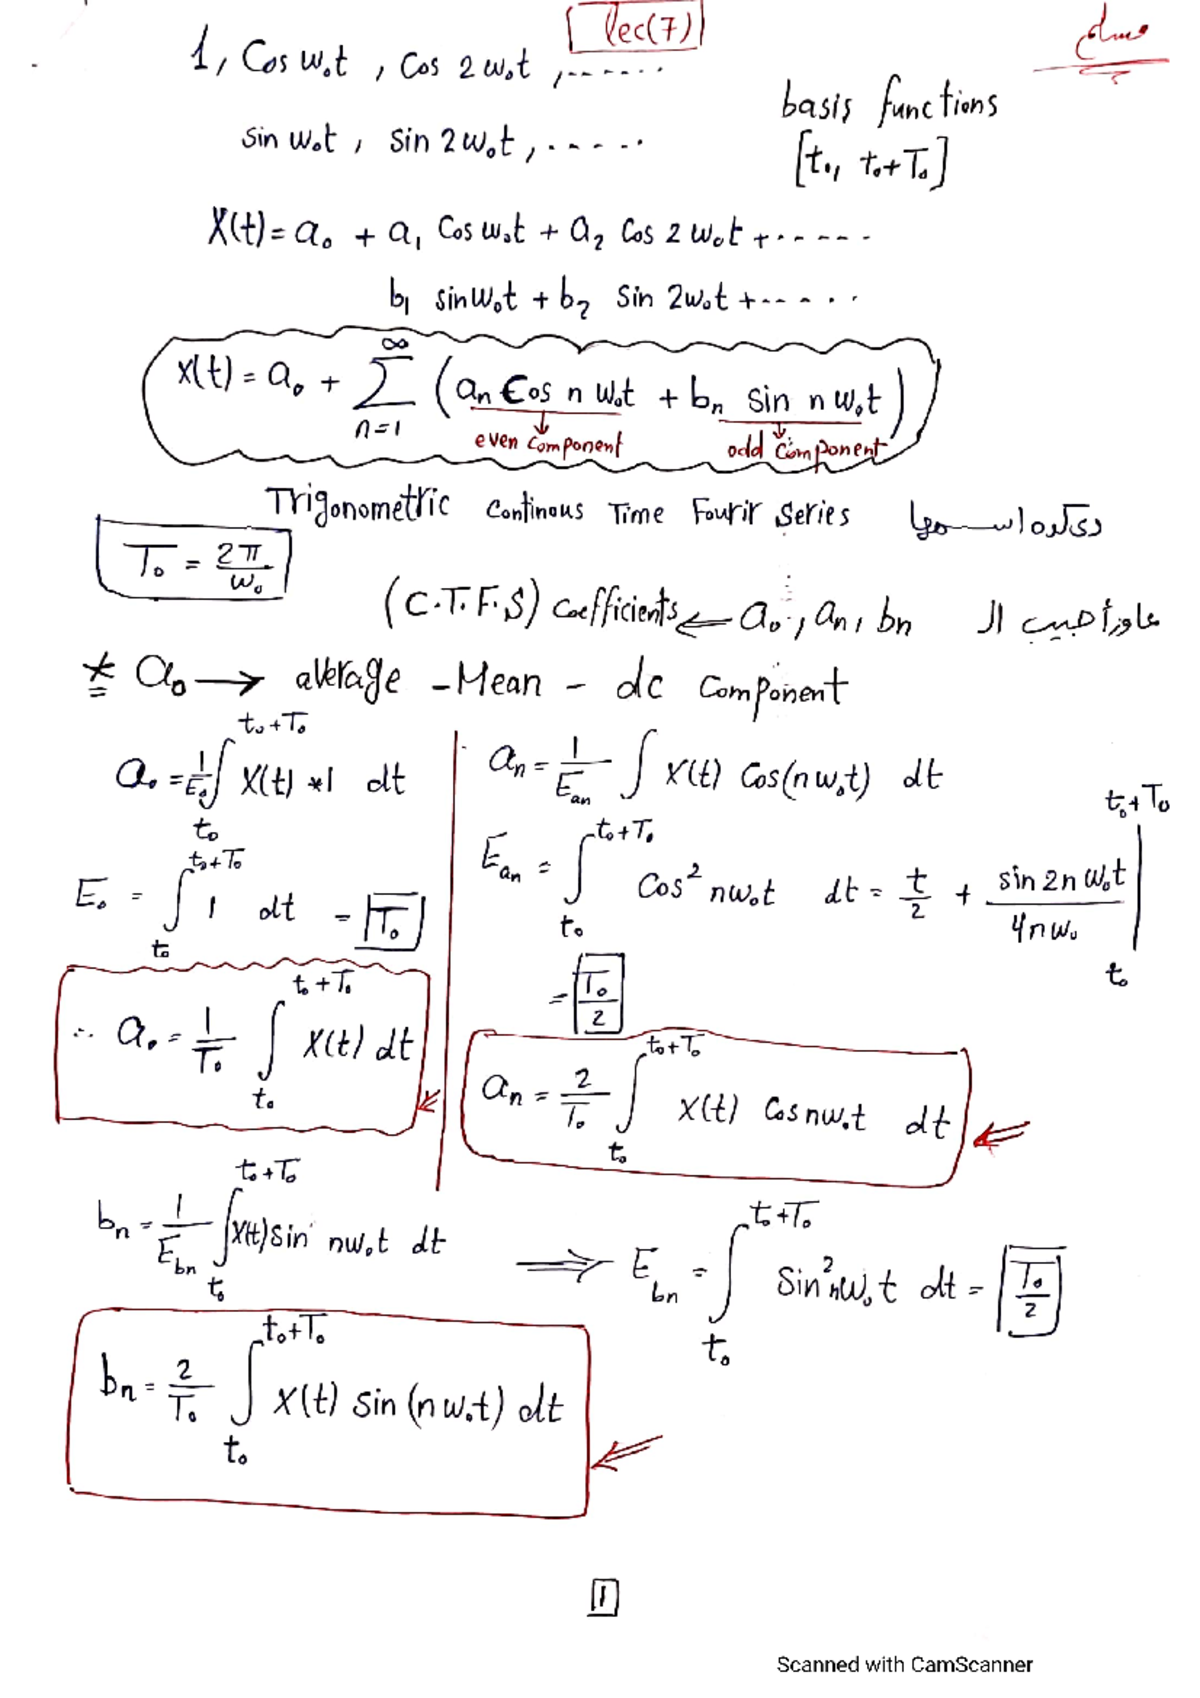 lec(7)
1, Cos ω₀t , Cos 2ω₀t ,.......
sin ω₀t , sin 2ω₀t ,......
basis functions
[t₀, t₀+T₀]
X(t) = a₀ + a₁ Cos ω₀t + a₂ Cos 2ω₀t + ......
b₁ sin ω₀t + b₂ sin 2ω₀t + ......
x(t) = a₀ + ∑_{n=1}^{∞} (aₙ Cos nω₀t + bₙ sin nω₀t)
even Component
odd Component
Trigonometric Continous Time Fourir Series
دى كده اسمها
T₀ = 2π/ω₀
(C.T.F.S) Coefficients ⇐ a₀, aₙ, bₙ
عاوز أجيب ال
* a₀ → average - Mean - dc Component
a₀ = 1/E₀ ∫_{t₀}^{t₀+T₀} X(t) *1 dt
E₀ = ∫_{t₀}^{t₀+T₀} 1 dt = T₀
∴ a₀ = 1/T₀ ∫_{t₀}^{t₀+T₀} X(t) dt
aₙ = 1/E_{an} ∫ X(t) Cos(nω₀t) dt
E_{an} = ∫_{t₀}^{t₀+T₀} Cos² nω₀t dt = t/2 + sin 2nω₀t/4nω₀ |_{t₀}^{t₀+T₀}
= T₀/2
aₙ = 2/T₀ ∫_{t₀}^{t₀+T₀} X(t) Cos nω₀t dt
bₙ = 1/E_{bn} ∫_{t₀}^{t₀+T₀} X(t) sin nω₀t dt ⇒ E_{bn} = ∫_{t₀}^{t₀+T₀} Sin² nω₀t dt = T₀/2
bₙ = 2/T₀ ∫_{t₀}^{t₀+T₀} X(t) sin (nω₀t) dt
1
Scanned with CamScanner